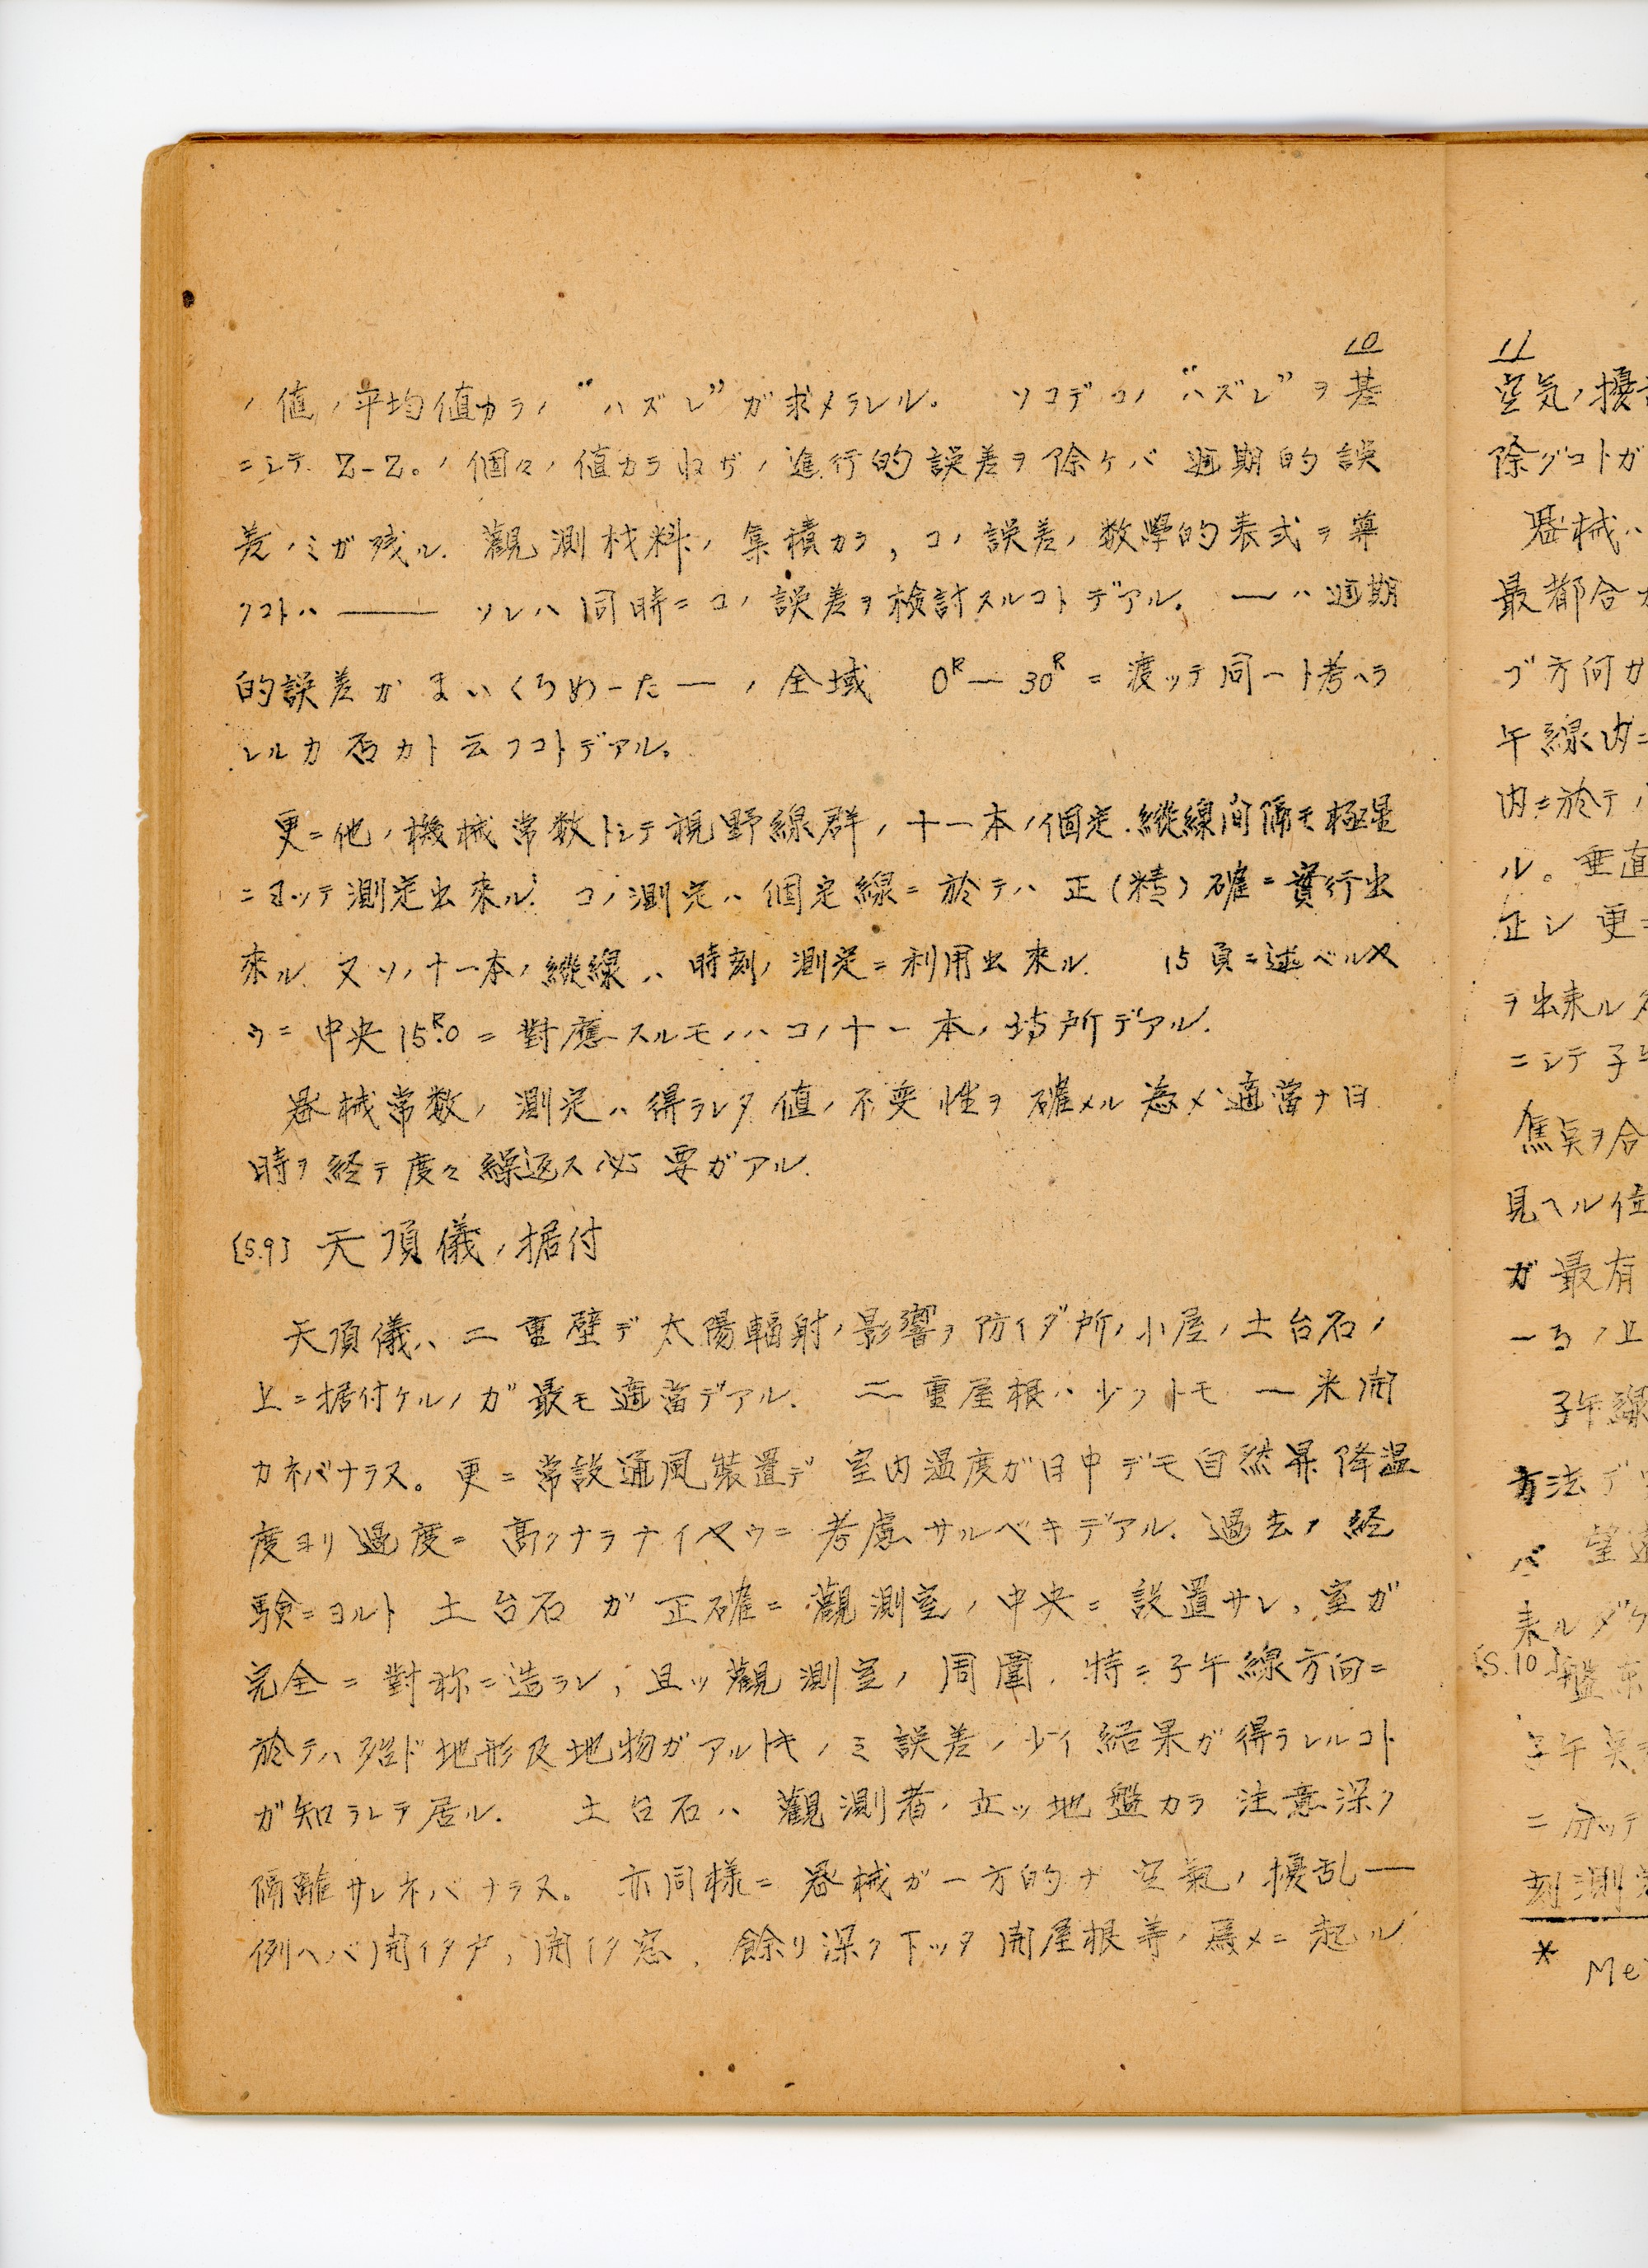 10
ノ値ノ平均値カラノ “ハズレ”ガ求メラレル。 ソコデコノ“ハズレ”ヲ基
ニシテ Z-Z₀ノ個々ノ値カラ 進行的誤差ヲ除ケバ週期的誤
差ノミガ残ル. 觀測材料ノ集積カラ, コノ誤差ノ数學的表式ヲ導
クコトハ —— ソレハ同時ニコノ誤差ヲ検討スルコトデアル. —ハ週期
的誤差ガまいくろめーたーノ全域 0ᴿ—30ᴿ ニ渡ッテ同一ト考ヘラ
レルカ否カト云フコトデアル。
更ニ他ノ機械常数トシテ視野線群ノ十一本ノ個定縦線間隔モ極星
ニヨッテ測定出来ル. コノ測定ハ個定線ニ於テハ正(精)確ニ實行出
來ル. 又ソノ十一本ノ縦線ハ時刻ノ測定ニ利用出来ル. 15頁ニ述ベルヤ
ウニ中央15ᴿ.0ニ對應スルモノハコノ十一本ノ場所デアル.
器械常数ノ測定ハ得ラレタ値ノ不変性ヲ確メル為メ適當ナ日
時ヲ経テ度々繰返ス必要ガアル.
[S.9] 天頂儀ノ据付
天頂儀ハ二重壁デ太陽輻射ノ影響ヲ防イダ所ノ小屋ノ土台石ノ
上ニ据付ケルノガ最モ適當デアル. 二重屋根ハ少クトモ一米開
カネバナラヌ。更ニ常設通風裝置デ室内温度ガ日中デモ自然昇降温
度ヨリ過度ニ高クナラナイヤウニ考慮サルベキデアル. 過去ノ経
験ニヨルト土台石ガ正確ニ觀測室ノ中央ニ設置サレ, 室ガ
完全ニ對称ニ造ラレ, 且ッ觀測室ノ周圍, 特ニ子午線方向ニ
於テハ殆ド地形及地物ガアルトキノミ誤差ノ少イ結果ガ得ラレルコト
ガ知ラレテ居ル. 土台石ハ觀測者ノ立ツ地盤カラ注意深ク
隔離サレネバナラヌ。亦同様ニ器械ガ一方的ナ空氣ノ擾乱—
例ヘバ開イタ戸, 開イタ窓, 餘リ深ク下ッタ開屋根等ノ為メニ起ル
11
空気ノ擾
除グコトガ
器械ハ
最都合
ブ方何カ
午線内ニ
内ニ於テ
ル。垂直
正シ更ニ
ヲ出来ル
ニシテ子
焦点ヲ合
見ヘル位
ガ最有
ノ上
子午線
方法デ
バ 望遠
来ルダケ
[S.10]
子午
ニ分ッテ
刻測
* Me